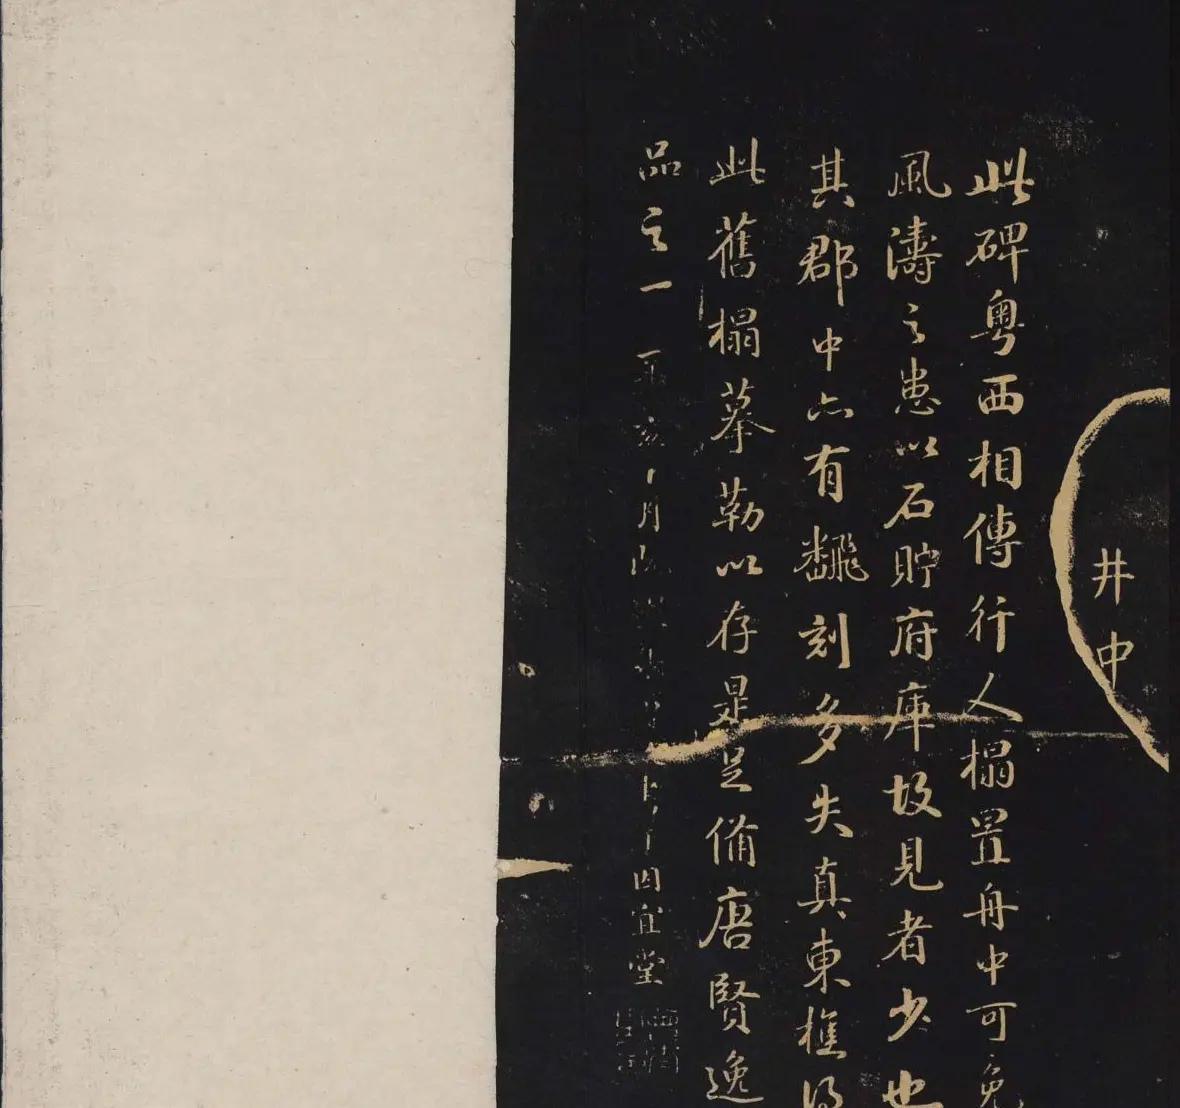 井中
此碑粤西相傳行人搨置舟中可免
風濤之患以石貯府庫故見者少也
其郡中亦有飜刻多失真東樵得
此舊搨摹勒以存是足備唐賢逸
品之一
亥
月
宜堂